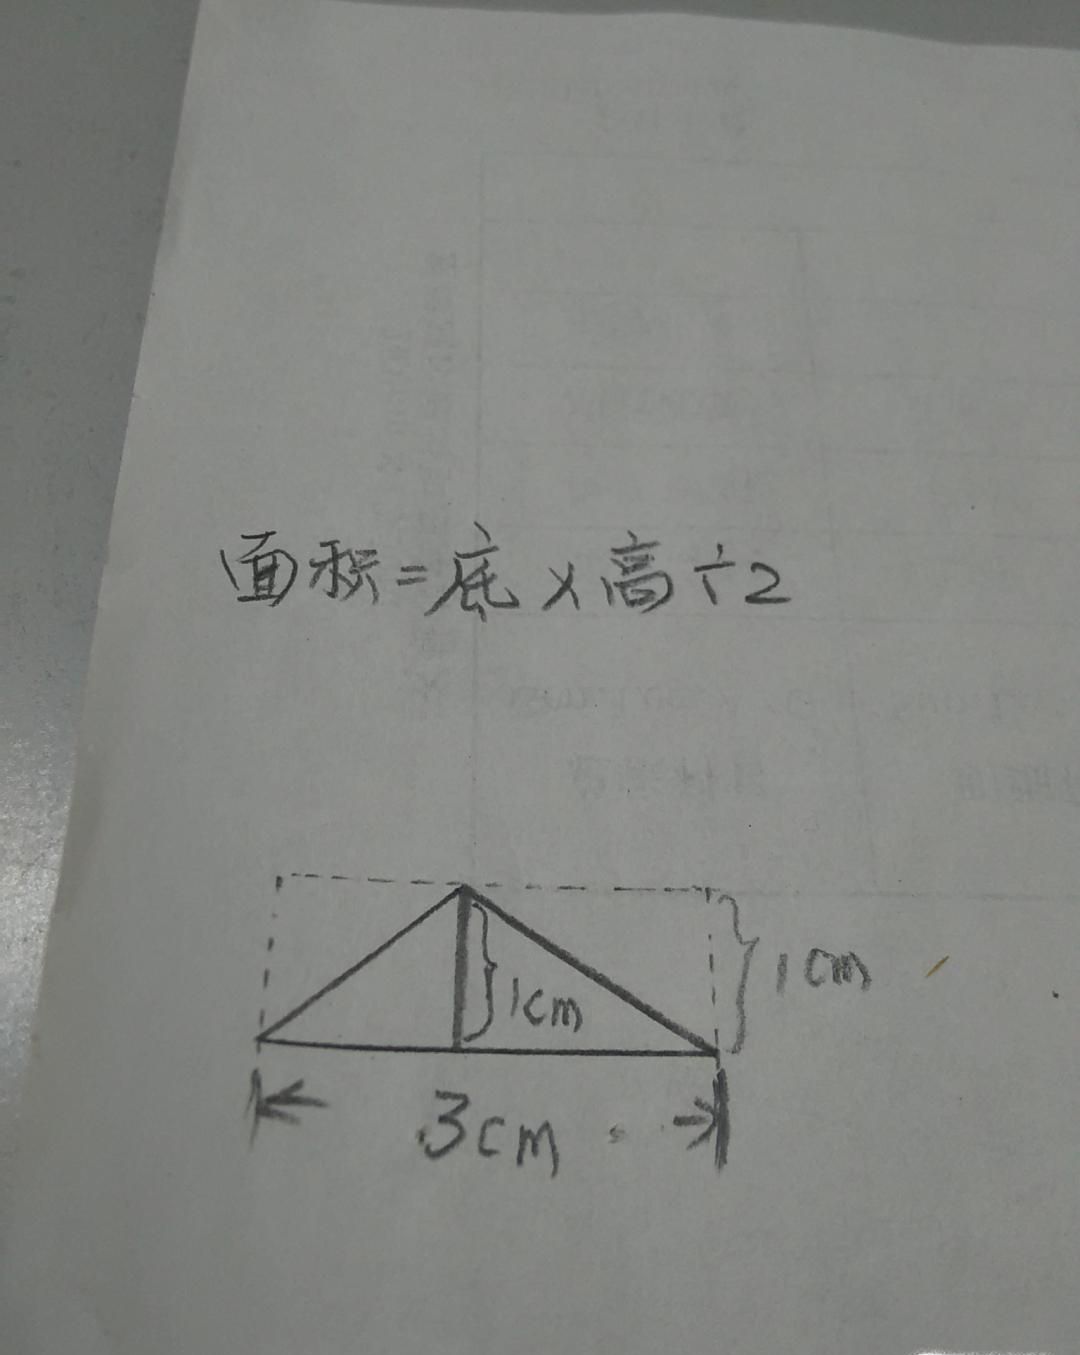 面积=底×高÷2
1cm
1cm
3cm